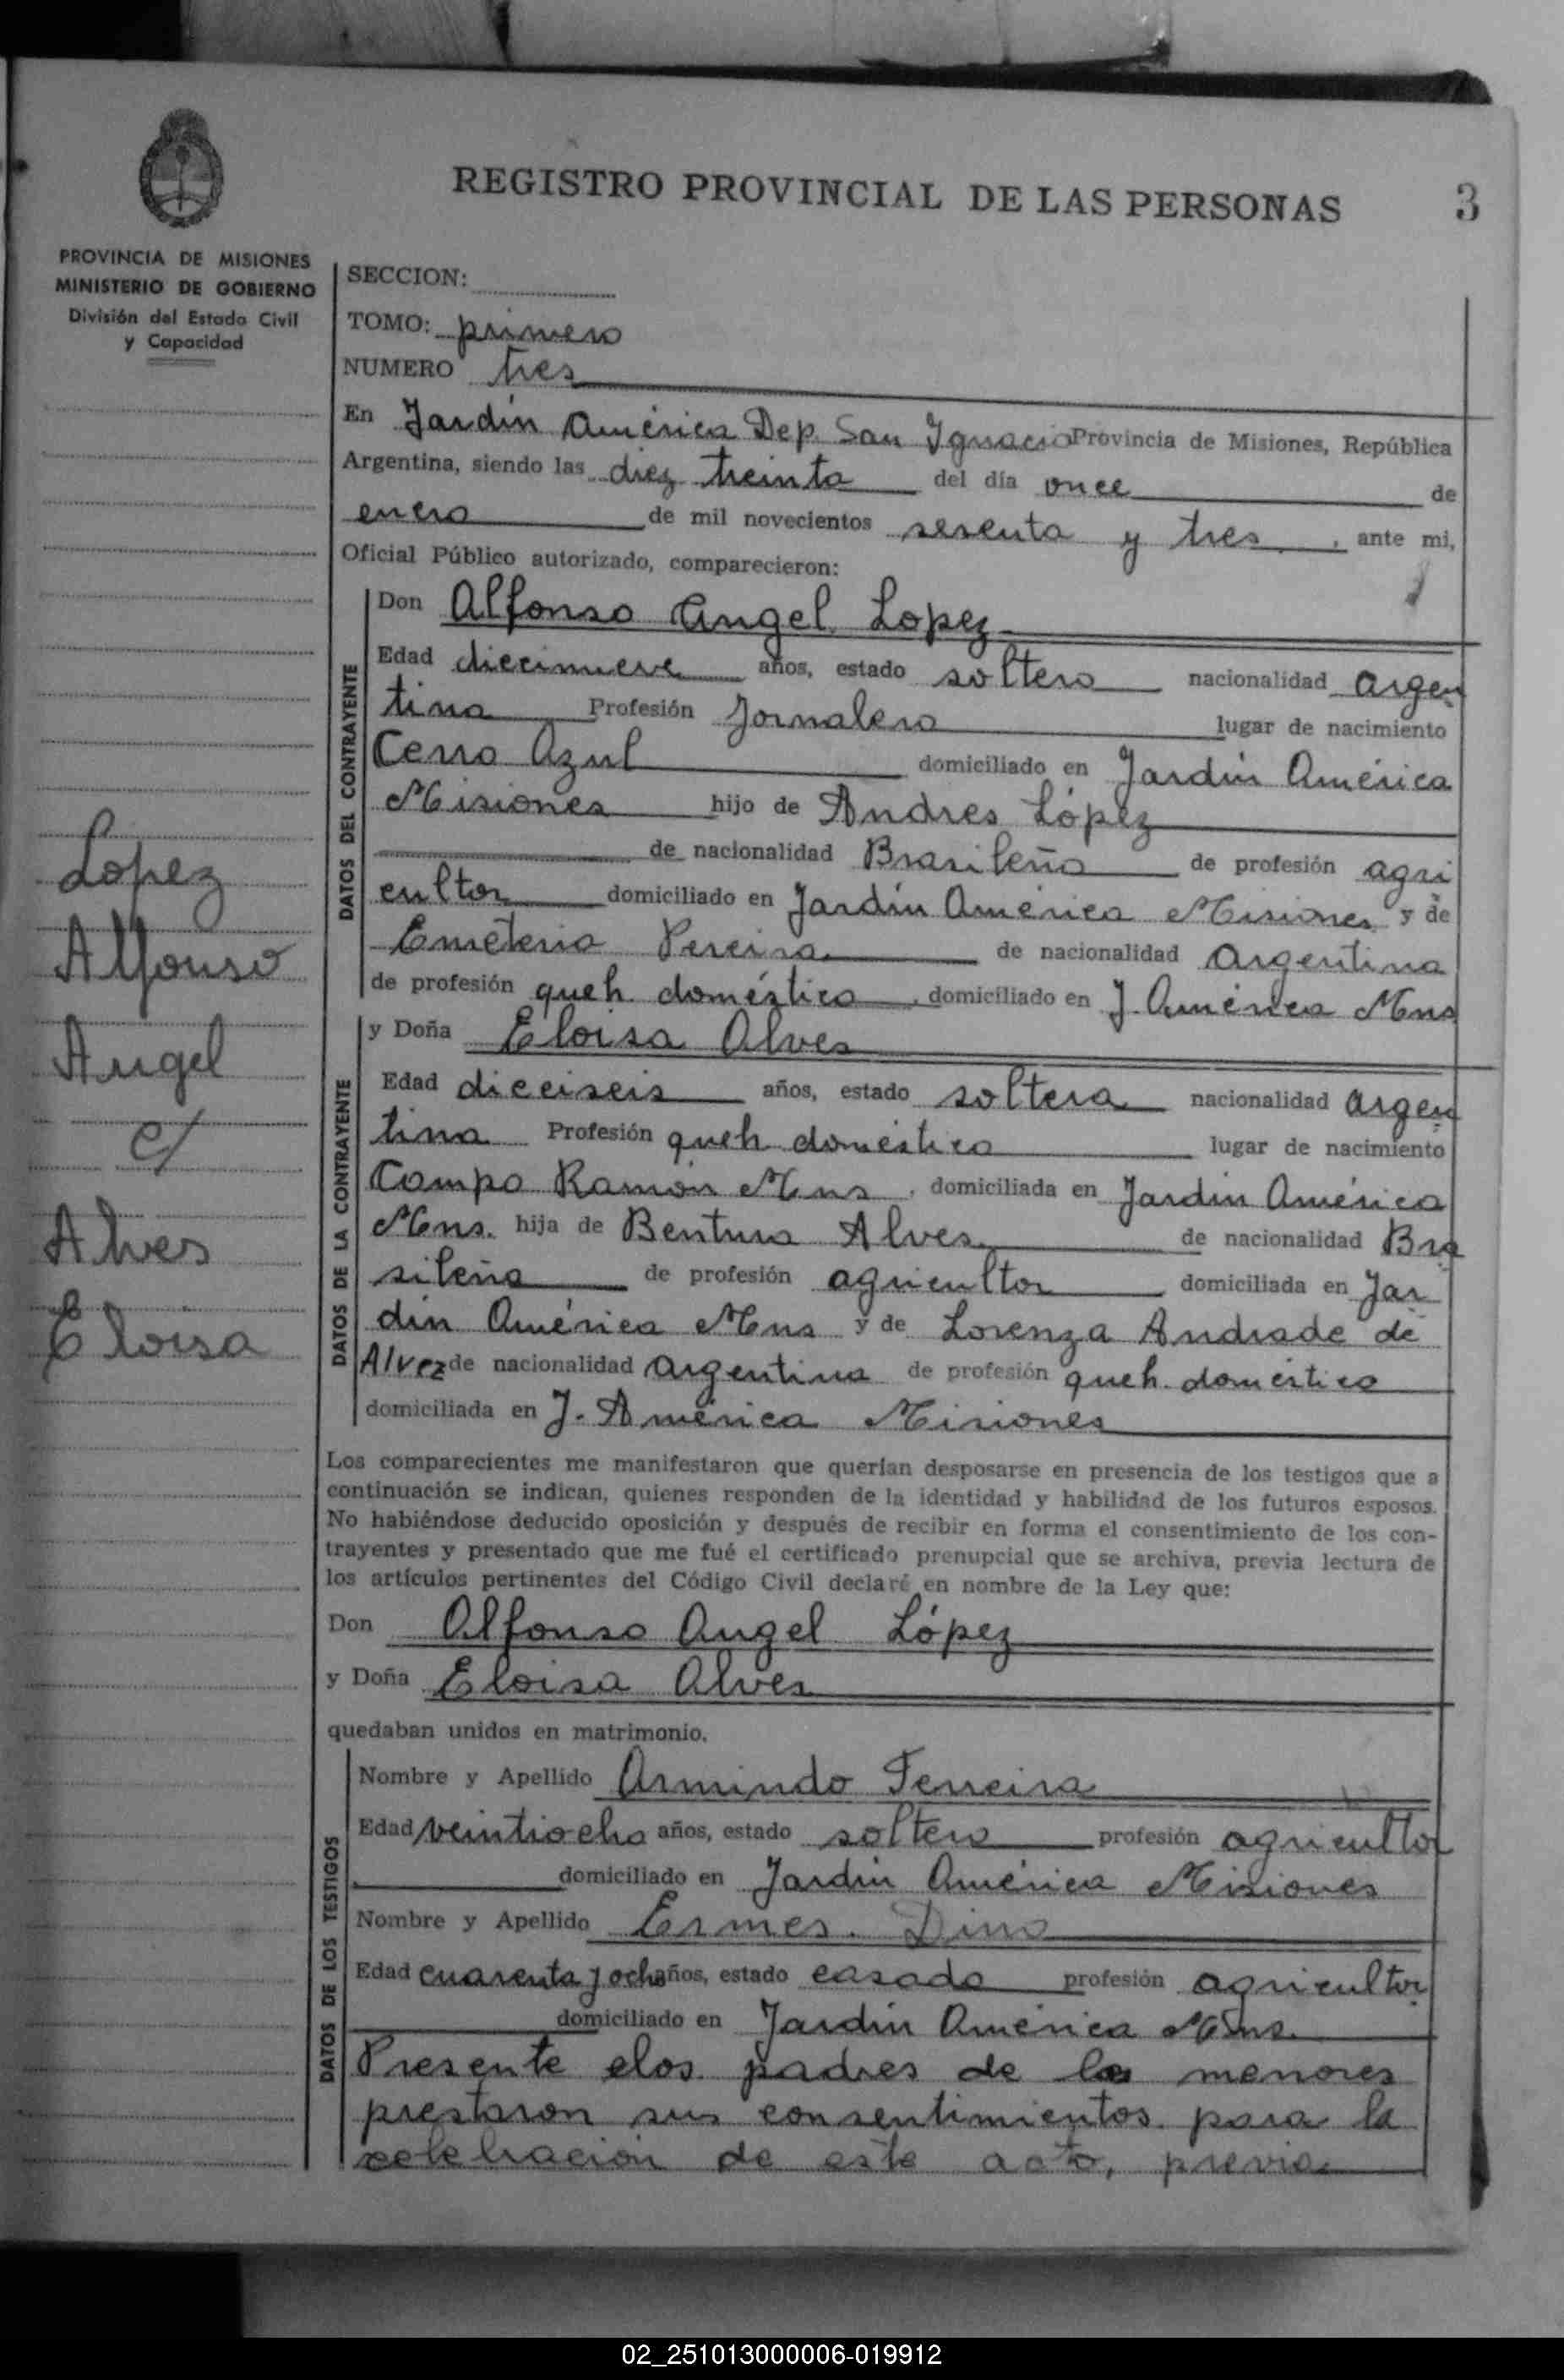 REGISTRO PROVINCIAL DE LAS PERSONAS 3
PROVINCIA DE MISIONES
MINISTERIO DE GOBIERNO
División del Estado Civil
y Capacidad
SECCION:
TOMO: primero
NUMERO tres
En Jardín América Dep. San Ygnacio Provincia de Misiones, República
Argentina, siendo las diez treinta del día once de
enero de mil novecientos sesenta y tres, ante mi,
Oficial Público autorizado, comparecieron:
DATOS DEL CONTRAYENTE
Don Alfonso Angel Lopez
Edad diecinueve años, estado soltero nacionalidad argen
tina Profesión Jornalero lugar de nacimiento
Cerro Azul domiciliado en Jardín América
Misiones hijo de Andres López
de nacionalidad Brasileña de profesión agri
cultor domiciliado en Jardín América Misiones y de
Emeteria Pereira de nacionalidad Argentina
de profesión queh. doméstico, domiciliado en J. América Mns
DATOS DE LA CONTRAYENTE
y Doña Eloisa Alves
Edad dieciseis años, estado soltera nacionalidad argen
tina Profesión queh doméstico lugar de nacimiento
Campo Ramón Mns, domiciliada en Jardín América
Mns. hija de Bentura Alves de nacionalidad Bra
sileña de profesión agricultor domiciliada en Jar
dín América Mns y de Lorenza Andrade de
Alvez de nacionalidad argentina de profesión queh. doméstico
domiciliada en J. América Misiones
Lopez
Alfonso
Angel
c/
Alves
Eloisa
Los comparecientes me manifestaron que querían desposarse en presencia de los testigos que a
continuación se indican, quienes responden de la identidad y habilidad de los futuros esposos.
No habiéndose deducido oposición y después de recibir en forma el consentimiento de los con-
trayentes y presentado que me fué el certificado prenupcial que se archiva, previa lectura de
los artículos pertinentes del Código Civil declaré en nombre de la Ley que:
Don Alfonso Angel López
y Doña Eloisa Alves
quedaban unidos en matrimonio.
DATOS DE LOS TESTIGOS
Nombre y Apellido Armindo Ferreira
Edad veintiocho años, estado soltero profesión agricultor
domiciliado en Jardín América Misiones
Nombre y Apellido Ermes. Dino
Edad cuarenta y ocho años, estado casado profesión agricultor
domiciliado en Jardín América Mns.
Presente elos padres de los menores
prestaron sus consentimientos para la
celebración de este acto, previa
02_251013000006-019912